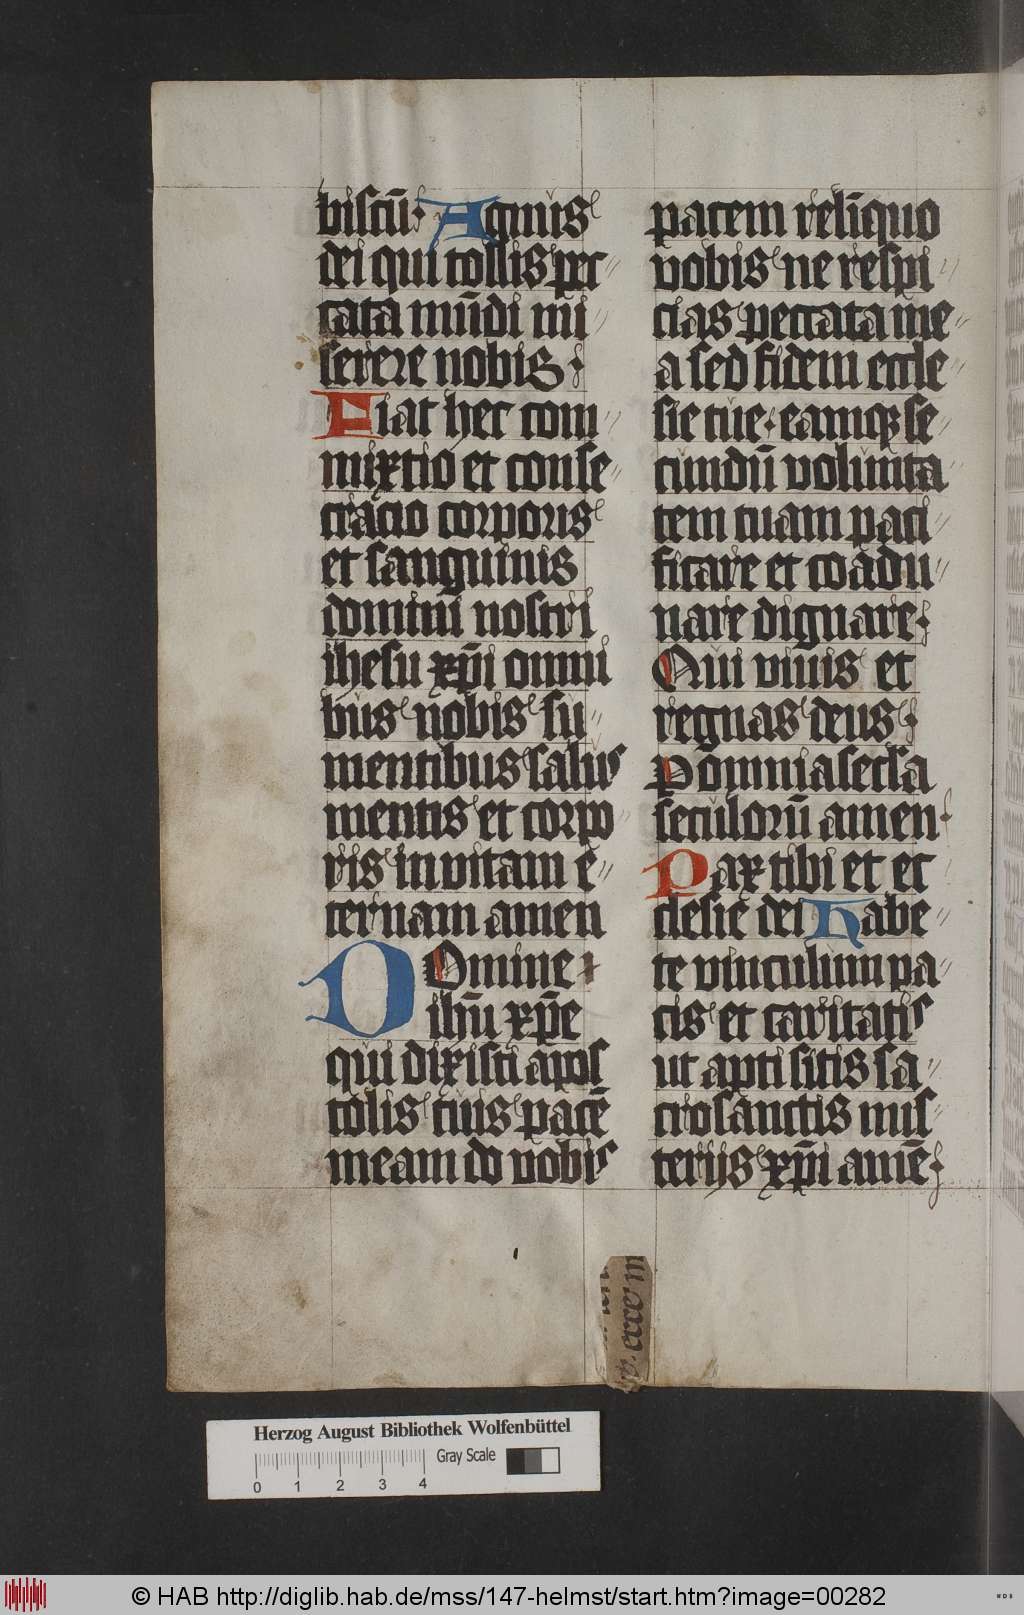 biscū· Agnus
dei qui tollis pec
cata mūdi mi
serere nobis
Fiat hec com
mixtio et conse
cracio corporis
et sanguinis
domini nostri
ihesu xp̄i omni
bus nobis su
mentibus salus
mentis et corpo
ris in vitam e
ternam amen
DOmine
ihū xp̄e
qui dixisti apos
tolis tuis pacē
meam do vobis
pacem relīquo
vobis ne respi
cias peccata me
a sed fidem eccle
sie tue· eamqꝫ se
cundū volunta
tem tuam paci
ficare et coadu
nare dignare
Qui vivis et
regnas deus
P omnia secl̄a
seculorū amen
Pax tibi et ec
clesie dei Habe
te vinculum pa
cis et caritatis
ut apti sitis sa
crosanctis mis
terijs xp̄i amē
Herzog August Bibliothek Wolfenbüttel
Gray Scale
0 1 2 3 4
© HAB http://diglib.hab.de/mss/147-helmst/start.htm?image=00282